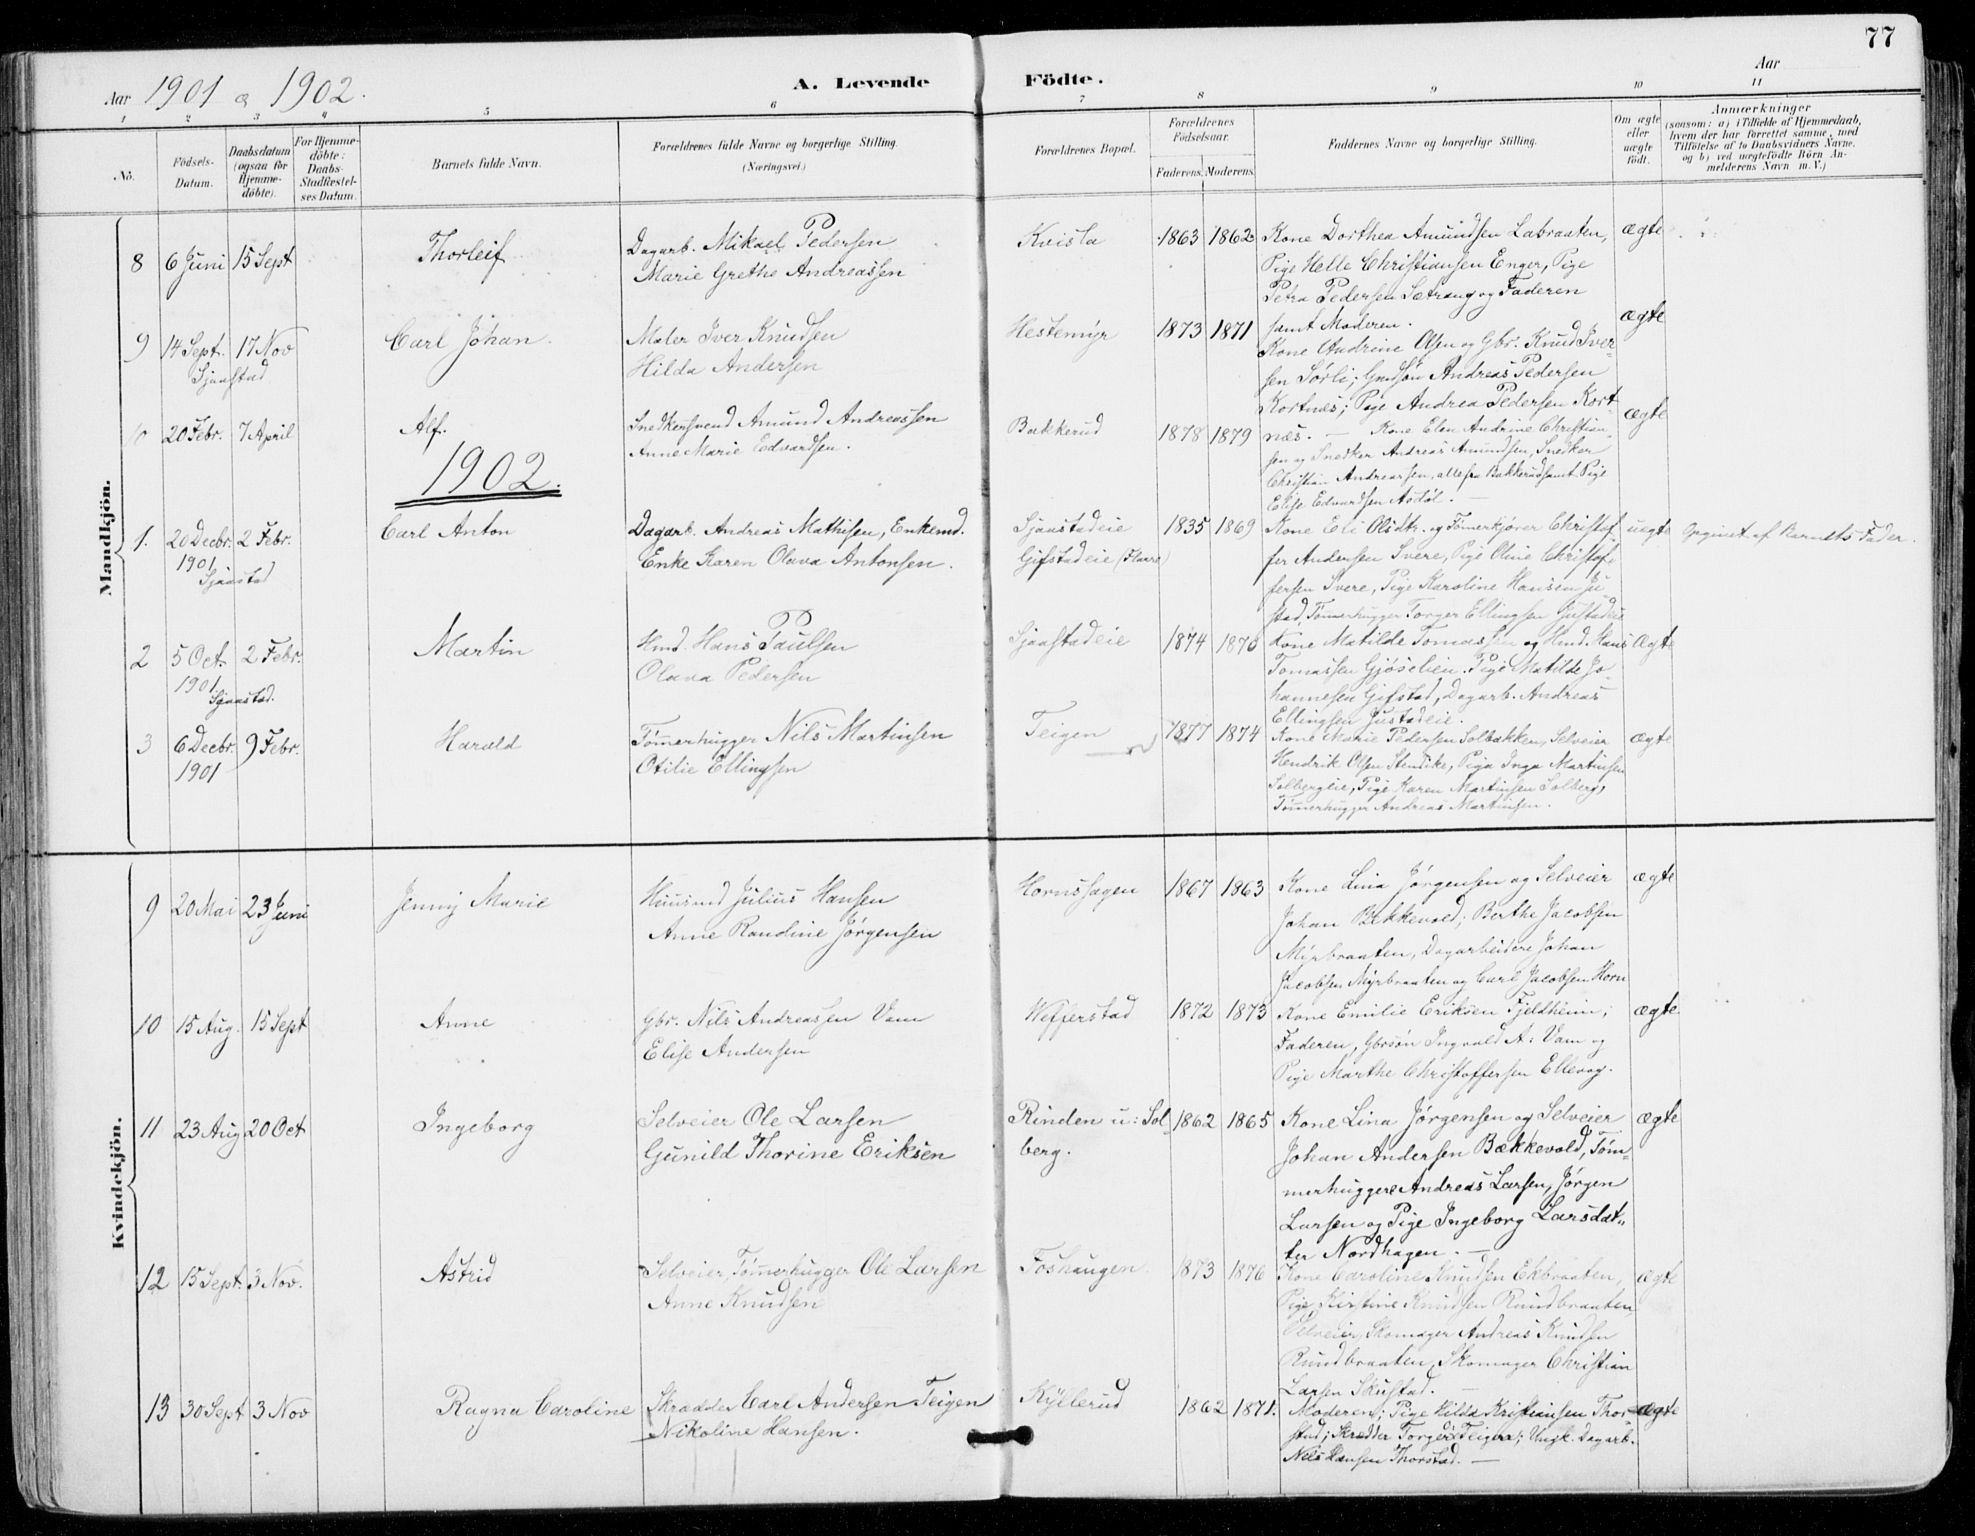 77
Aar 1901 & 1902.
A. Levende Födte.
Aar
1 2 3 4 5 6 7 8 9 10 11
No.
Födsels-
Datum.
Daabsdatum
(ogsaa for
Hjemme-
döbte).
For Hjemme-
döbte:
Daabs-
Stadfæstel-
ses Datum.
Barnets fulde Navn.
Forældrenes fulde Navne og borgerlige Stilling.
(Næringsvei.)
Forældrenes Bopæl.
Forældrenes
Födselsaar.
Faderens. Moderens.
Faddernes Navne og borgerlige Stilling.
Om ægte
eller
uægte
födt.
Anmærkninger
(saasom: a) i Tilfælde af Hjemmedaab,
hvem der har forrettet samme, med
Tilföielse af to Daabsvidners Navne,
og b) ved uægtefödte Börn An-
melderens Navn m. V.)
Mandkjön.
8 6 Juni 15 Sept Thorleif Dagarb. Mikael Pedersen
Marie Grethe Andreassen
Kvisla 1863 1862 Kone Dorthea Amundsen Labraaten, ægte
Pige Helle Christiansen Enger, Pige
Petra Pedersen Sætrang og Faderen
samt Moderen.
9 14 Sept. 17 Nov Carl Johan. Maler Iver Knudsen
Sjaastad
Hilda Andersen
Hestemyr 1873 1871 ægte
Kone Andrine Olsen og Gbr. Knud Iver-
sen Sørli; Grdsøn Andreas Pedersen
Kortnæs; Pige Andrea Pedersen Kort-
næs. —
10 20 Febr. 7 April Alf. Snedkersvend Amund Andreassen
Anne Marie Edvardsen.
Bakkerud 1878 1879 Kone Elen Andrine Christian- ægte
sen og Snedker Andreas Amundsen, Snedker
Christian Andreassen, alle fra Bakkerud samt Pige
Elise Edvardsen Asdøl. —
1902.
1. 20 Decbr. 2 Febr. Carl Anton Dagarb. Andreas Mathisen, Enkemd.
1901
Sjaastad
Enke Karen Olava Antonsen.
Sjaastadeie 1835 1869 Kone Eli Olsdtr. og Tømerkjører Christof- uegte Opgivet af Barnets Fader.
Gifstadeie
fer Andersen Svere, Pige Oline Christof-
fersen Svere, Pige Karoline Hansen Ju-
stad, Tømmerhugger Torger Ellingsen Justadeie
2 5 Oct. 2 Febr. Martin Hmd. Hans Paulsen
1901
Sjaastad.
Olava Pedersen
Sjaastadeie 1874 Kone Matilde Tomassen og Hmd. Hans Ægte
Tomassen Gjøselien. Pige Matilde Jo-
hannesen Gifstad, Dagarb. Andreas
Ellingsen Justadeie.
3 6 Decbr. 9 Febr. Harald Tømerhugger Nils Martinsen
1901
Otilie Ellingsen
Teigen 1877 1874 Kone Marie Pedersen Solbakken, Selveier ægte
Hendrik Olsen Stenrike, Pige Inga Martinsen
Solbergeie, Pige Karen Martinsen Solberg,
Tømmerhugger Andreas Martinsen.
Kvindekjön.
9 20 Mai 23 Juni Jenny Marie Huusmd Julius Hansen
Anne Randine Jørgensen
Hornshagen 1867 1863 Kone Lina Jørgensen og Selveier ægte
Johan Bekkevold; Berthe Jacobsen
Myrbraaten, Dagarbeidere Johan
Jacobsen Myrbraaten og Carl Jacobsen Horn
10 15 Aug. 15 Sept Anne Gbr. Nils Andreassen Vam
Elise Andersen
Wefferstad 1872 1873 Kone Emilie Eriksen Fjeldheim; ægte
Faderen, Gbrsøn Ingvald A: Vam og
Pige Marthe Christoffersen Ellevog.
11 23 Aug 20 Oct Ingeborg Selveier Ole Larsen
Gunild Thorine Eriksen
Rinden u: Sol-
berg.
1862 1865 Kone Lina Jørgensen og Selveier ægte
Johan Andersen Bækkevold, Tøm-
merhuggere Andreas Larsen, Jørgen
Larsen og Pige Ingeborg Larsdat-
ter Nordhagen. —
12 15 Sept. 3 Nov. Astrid Selveier, Tømmerhugger Ole Larsen
Anne Knudsen
Foshaugen 1873 1876 Kone Caroline Knudsen Ekbraaten, Ægte
Pige Kirstine Knudsen Rundbraaten,
Selveier, Skomager Andreas Knudsen
Rundbraaten, Skomager Christian
Larsen Skustad. —
13 30 Sept 3 Nov Ragna Caroline Skrædder Carl Andersen Teigen
Nikoline Hansen.
Kyllerud 1862 1871. Moderen; Pige Hilda Kristiansen Thor- ægte
stad; Skrædder Torger Teigen; Ungk. Dagarb.
Nils Hansen Thorstad. —